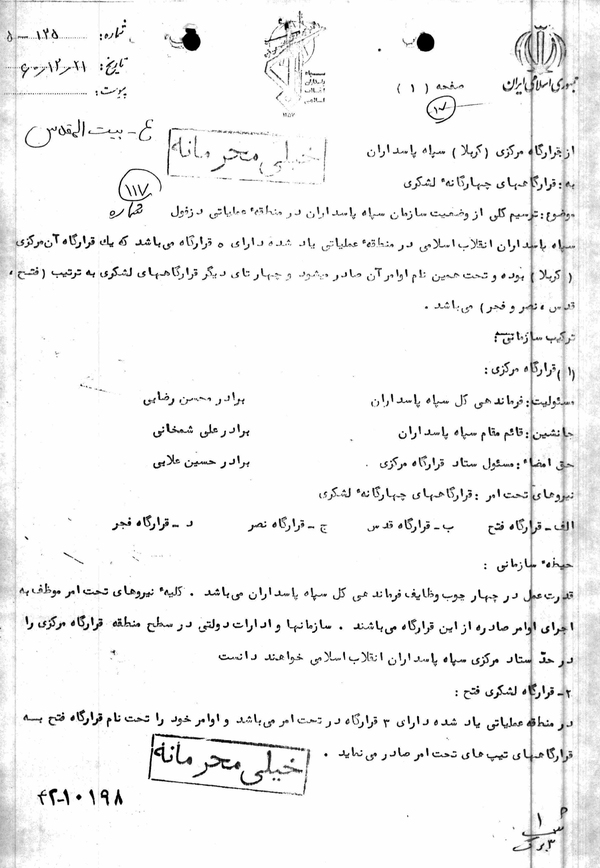 جمهوری اسلامی ایران
سپاه پاسداران انقلاب اسلامی
۱۳۵۷
صفحه ( ۱ )
شماره: ۱۲۵ - ۵
تاریخ: ۲۱ر۱۲ر۶۰
پیوست:
ع - بیت المقدس
خیلی محرمانه
شماره ۱۱۷
از: قرارگاه مرکزی ( کربلا ) سپاه پاسداران
به: قرارگاههای چهارگانهٔ لشکری
موضوع: ترسیم کلی از وضعیت سازمان سپاه پاسداران در منطقهٔ عملیاتی دزفول
سپاه پاسداران انقلاب اسلامی در منطقهٔ عملیاتی یاد شده دارای ۵ قرارگاه می‌باشد که یك قرارگاه آن مرکزی
( کربلا ) بوده و تحت همین نام اوامر آن صادر میشود و چهار تای دیگر قرارگاههای لشکری به ترتیب ( فتح ،
قدس ، نصر و فجر ) می‌باشد .
ترکیب سازمانی:
۱) قرارگاه مرکزی:
مسئولیت: فرماندهی کل سپاه پاسداران برادر محسن رضایی
جانشین: قائم مقام سپاه پاسداران برادر علی شمخانی
حق امضاء: مسئول ستاد قرارگاه مرکزی . برادر حسین علایی
نیروهای تحت امر : قرارگاههای چهارگانهٔ لشکری
الف - قرارگاه فتح ب - قرارگاه قدس ج - قرارگاه نصر د - قرارگاه فجر
حیطهٔ سازمانی :
قدرت عمل در چهار چوب وظایف فرماندهی کل سپاه پاسداران می‌باشد . کلیهٔ نیروهای تحت امر موظف به
اجرای اوامر صادره از این قرارگاه می‌باشند . سازمانها و ادارات دولتی در سطح منطقه قرارگاه مرکزی را
در حدّ ستاد مرکزی سپاه پاسداران انقلاب اسلامی خواهند دانست
۲- قرارگاه لشکری فتح :
در منطقه عملیاتی یاد شده دارای ۳ قرارگاه در تحت امر می‌باشد و اوامر خود را تحت نام قرارگاه فتح بسه
قرارگاههای تیپ های تحت امر صادر می نماید .
خیلی محرمانه
۴۲-۱۰۱۹۸
۳ برگ